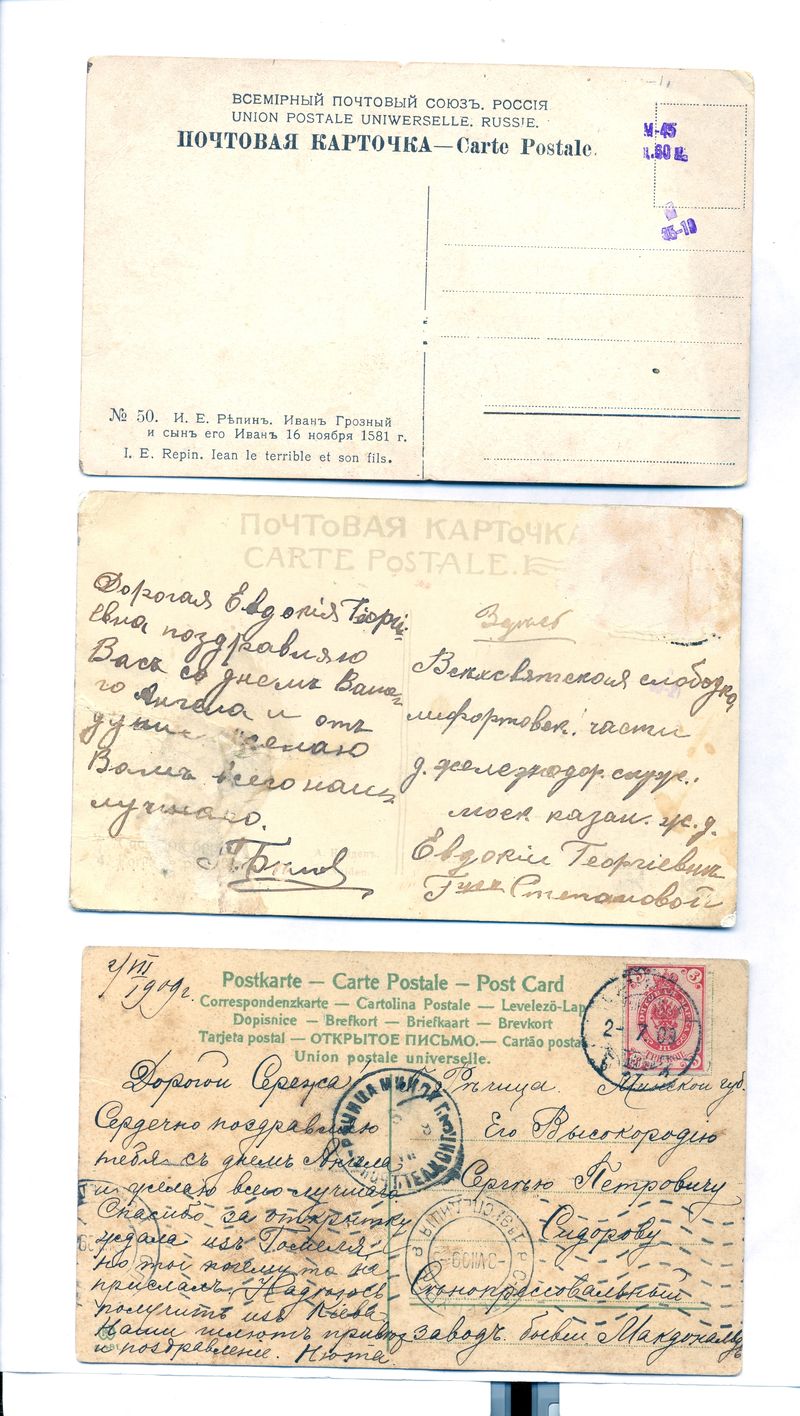 ВСЕМІРНЫЙ ПОЧТОВЫЙ СОЮЗЪ. РОССІЯ
UNION POSTALE UNIWERSELLE. RUSSIE.
ПОЧТОВАЯ КАРТОЧКА—Carte Postale.
М-45
ц.60 к.
35-10
№ 50. И. Е. Рѣпинъ. Иванъ Грозный
и сынъ его Иванъ 16 ноября 1581 г.
I. E. Repin. Iean le terrible et son fils.
ПОЧТОВАЯ КАРТОЧКА
CARTE POSTALE.
Дорогая Евдокія Георгі-
евна поздравляю
Васъ со днемъ Ваше-
го Ангела и отъ
души желаю
Вамъ всего наи-
лучшаго.
Здѣсь
Всехсвятская слободка,
лифортовск. части
д. железнодор. служ.
моск. казан. ж. д.
Евдокіи Георгіевнѣ
Степановой
2/VII
1909 г.
Postkarte — Carte Postale — Post Card
Correspondenzkarte — Cartolina Postale — Levelező-Lap
Dopisnice — Brefkort — Briefkaart — Brevkort
Tarjeta postal — ОТКРЫТОЕ ПИСЬМО.— Cartão postal
Union postale universelle.
3
2- 7 09
Дорогой Сережа!
Сердечно поздравляю
тебя съ днемъ Ангела
и желаю всего лучшаго
Спасибо за открытку
ждала изъ Гомеля,
но ты почему то не
прислалъ. Надѣюсь
получить изъ Кіева.
Наши шлютъ приветъ
и поздравление. Нюта.
г. Рѣчица. Минской губ.
Его Высокородію
Сергѣю Петровичу
Сидорову
Сѣнопрессовальный
заводъ бывш. Макдональдъ
РѢЧИЦА МИНСК. Г.
-3 VII 09